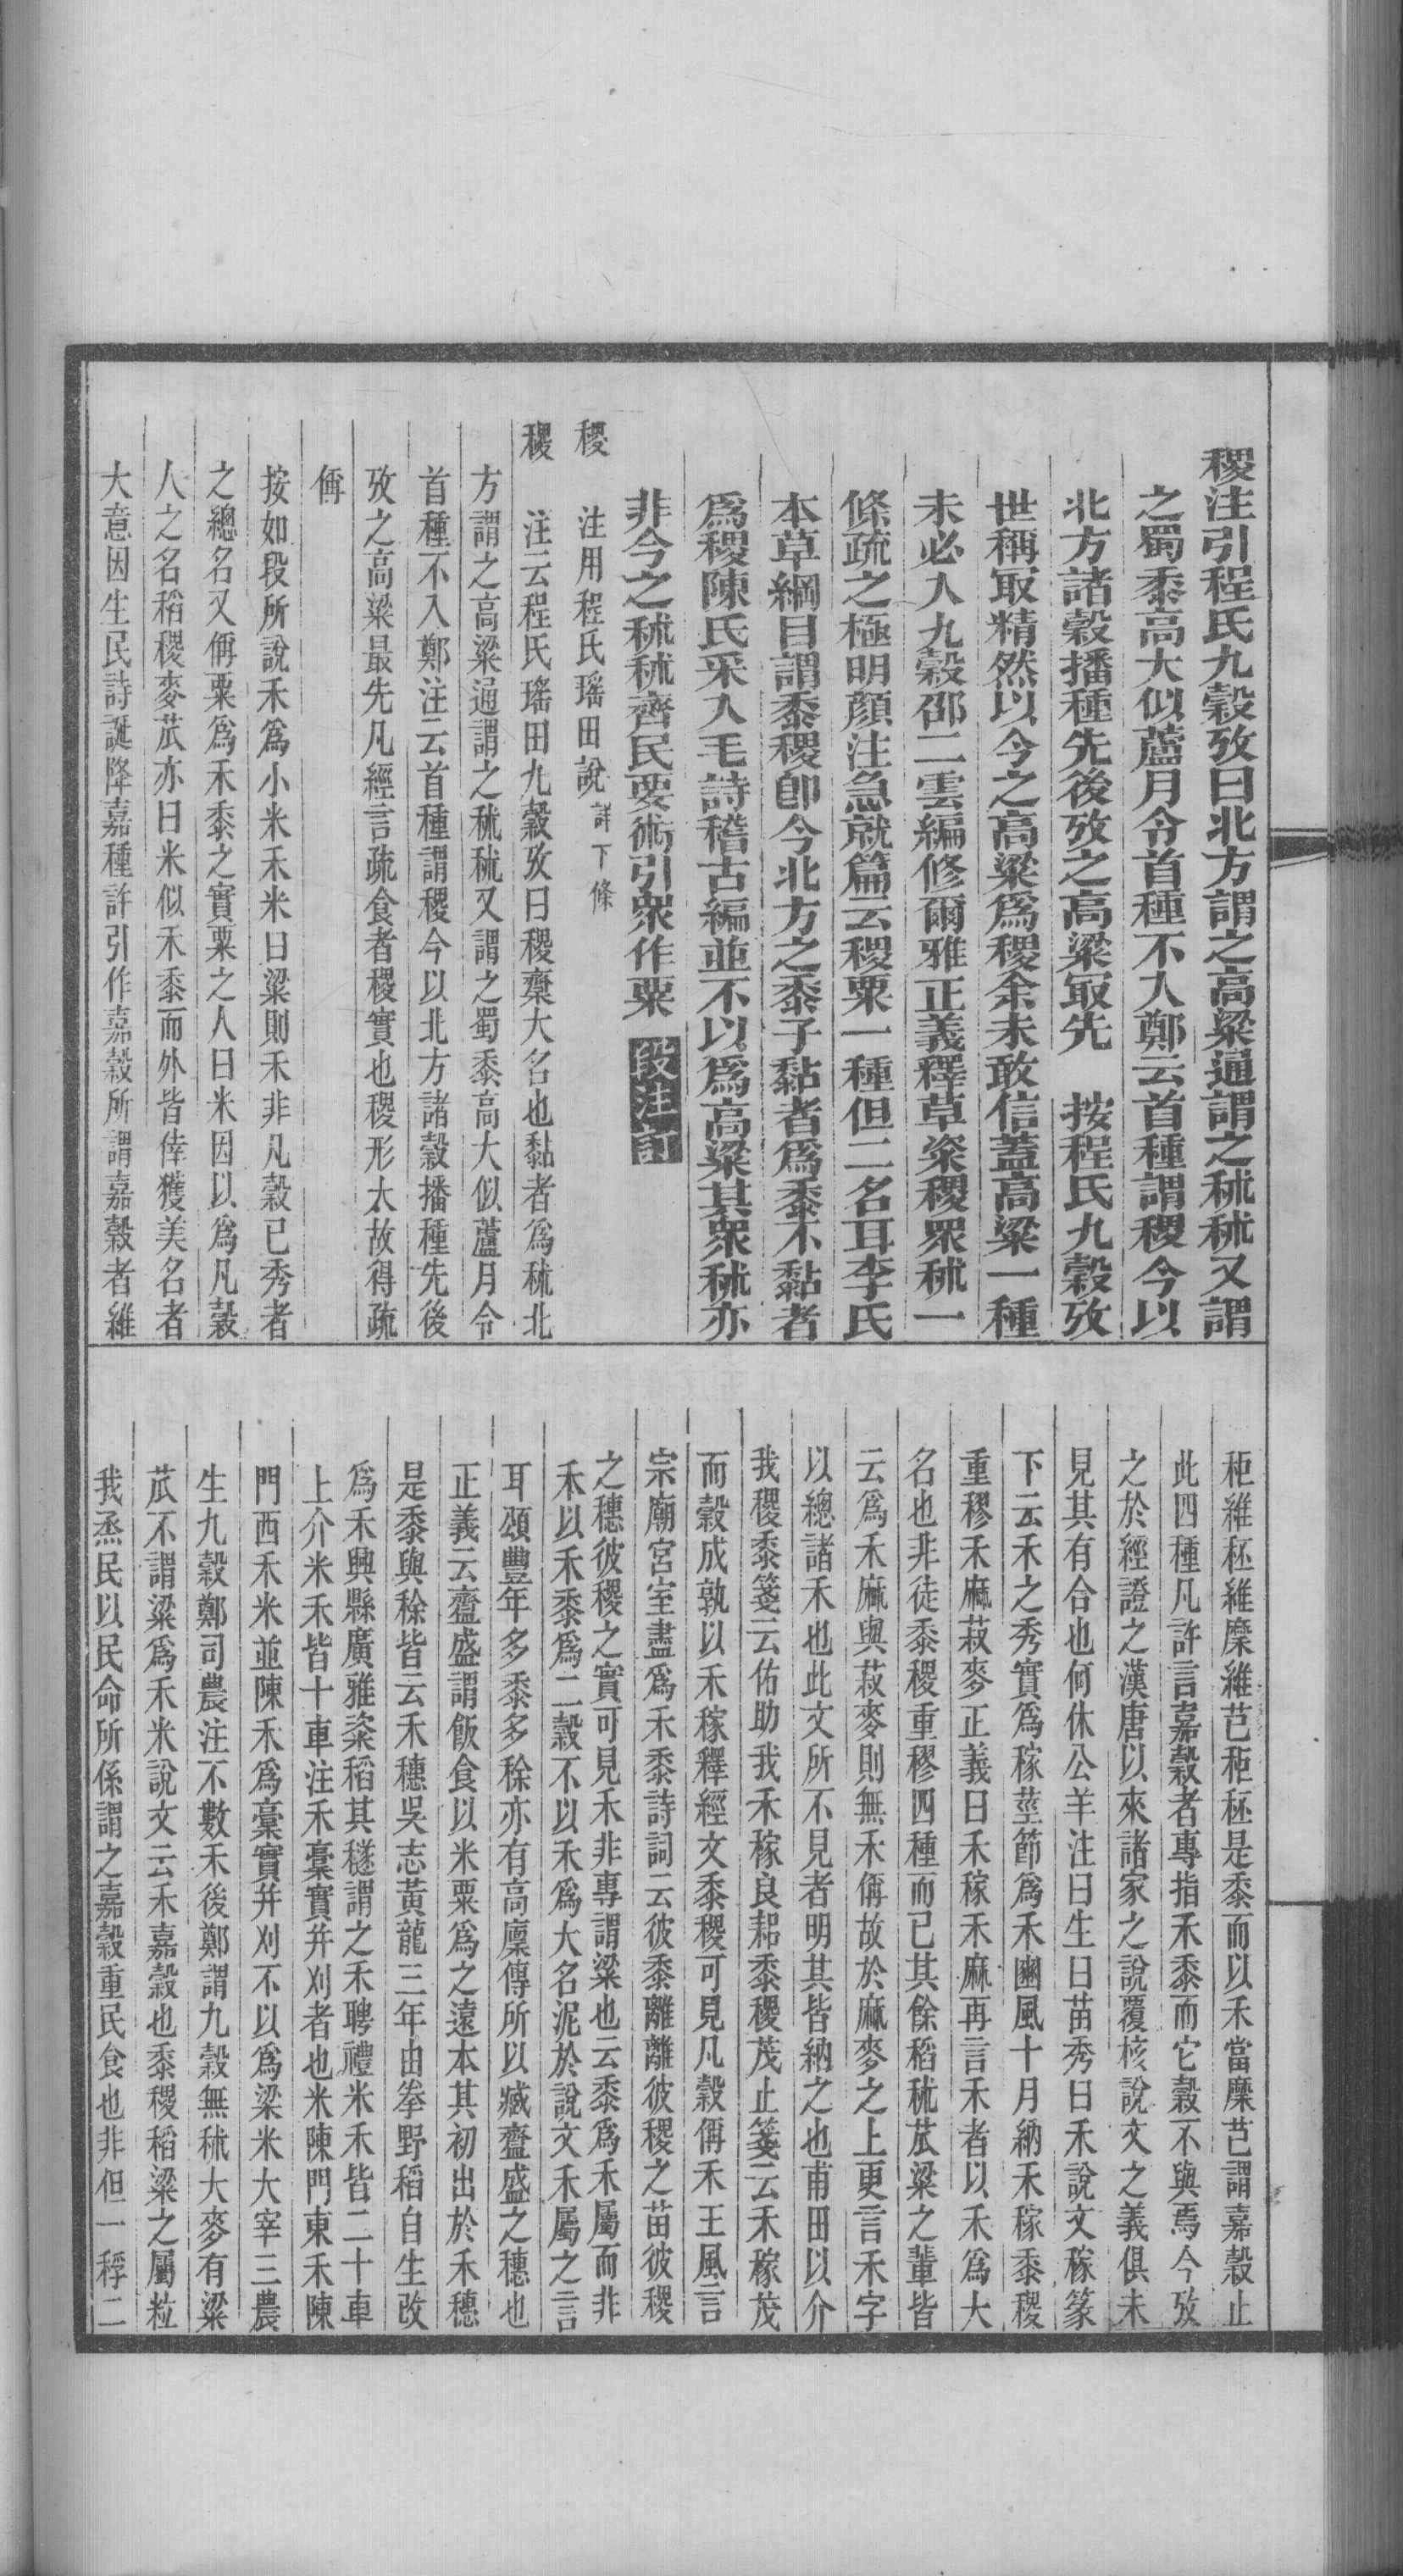 稷注引程氏九穀攷曰北方謂之高粱通謂之秫秫又謂
之蜀黍高大似蘆月令首種不入鄭云首種謂稷今以
北方諸穀播種先後攷之高粱冣先　按程氏九穀攷
世稱冣精然以今之高粱爲稷余未敢信蓋高粱一種
未必入九穀邵二雲編修爾雅正義釋草粢稷眾秫一
條疏之極明顏注急就篇云稷粟一種但二名耳李氏
本草綱目謂黍稷卽今北方之黍子黏者爲黍不黏者
爲稷陳氏采入毛詩稽古編並不以爲高粱其眾秫亦
非今之秫秫齊民要術引衆作粟　段注訂
稷　注用程氏瑤田說詳下條
稷　注云程氏瑤田九穀攷曰稷齋大名也黏者爲秫北
方謂之高粱通謂之秫秫又謂之蜀黍高大似蘆月令
首種不入鄭注云首種謂稷今以北方諸穀播種先後
攷之高粱最先凡經言疏食者稷實也稷形大故得疏
偁
按如段所說禾爲小米禾米曰粱則禾非凡穀已秀者
之總名又偁粟爲禾黍之實粟之人曰米因以爲凡穀
人之名稻稷麥苽亦曰米似禾黍而外皆倖獲美名者
大意因生民詩誕降嘉種許引作嘉穀所謂嘉穀者維
秬維秠維穈維芑秬秠是黍而以禾當穈芑謂嘉穀止
此四種凡許言嘉穀者專指禾黍而它穀不與焉今攷
之於經證之漢唐以來諸家之說覆核說文之義俱未
見其有合也何休公羊注曰生曰苗秀曰禾說文稼篆
下云禾之秀實爲稼莖節爲禾豳風十月納禾稼黍稷
重穋禾麻菽麥正義曰禾稼禾麻再言禾者以禾爲大
名也非徒黍稷重穋四種而已其餘稻秫苽粱之輩皆
云爲禾麻與菽麥則無禾偁故於麻麥之上更言禾字
以總諸禾也此文所不見者明其皆納之也甫田以介
我稷黍箋云佑助我禾稼良耜黍稷茂止箋云禾稼茂
而穀成孰以禾稼釋經文黍稷可見凡穀偁禾王風言
宗廟宮室盡爲禾黍詩詞云彼黍離離彼稷之苗彼稷
之穗彼稷之實可見禾非專謂粱也云黍爲禾屬而非
禾以禾黍爲二穀不以禾爲大名泥於說文禾屬之言
耳頌豐年多黍多稌亦有高廩傳所以臧齍盛之穗也
正義云齍盛謂飯食以米粟爲之遠本其初出於禾穗
是黍與稌皆云禾穗吳志黃龍三年由拳野稻自生改
爲禾興縣廣雅粢稻其穟謂之禾聘禮米禾皆二十車
上介米禾皆十車注禾稾實幷刈者也米陳門東禾陳
門西禾米並陳禾爲稾實幷刈不以爲粱米大宰三農
生九穀鄭司農注不數禾後鄭謂九穀無秫大麥有粱
苽不謂粱爲禾米說文云禾嘉穀也黍稷稻粱之屬粒
我烝民以民命所係謂之嘉穀重民食也非但一稃二